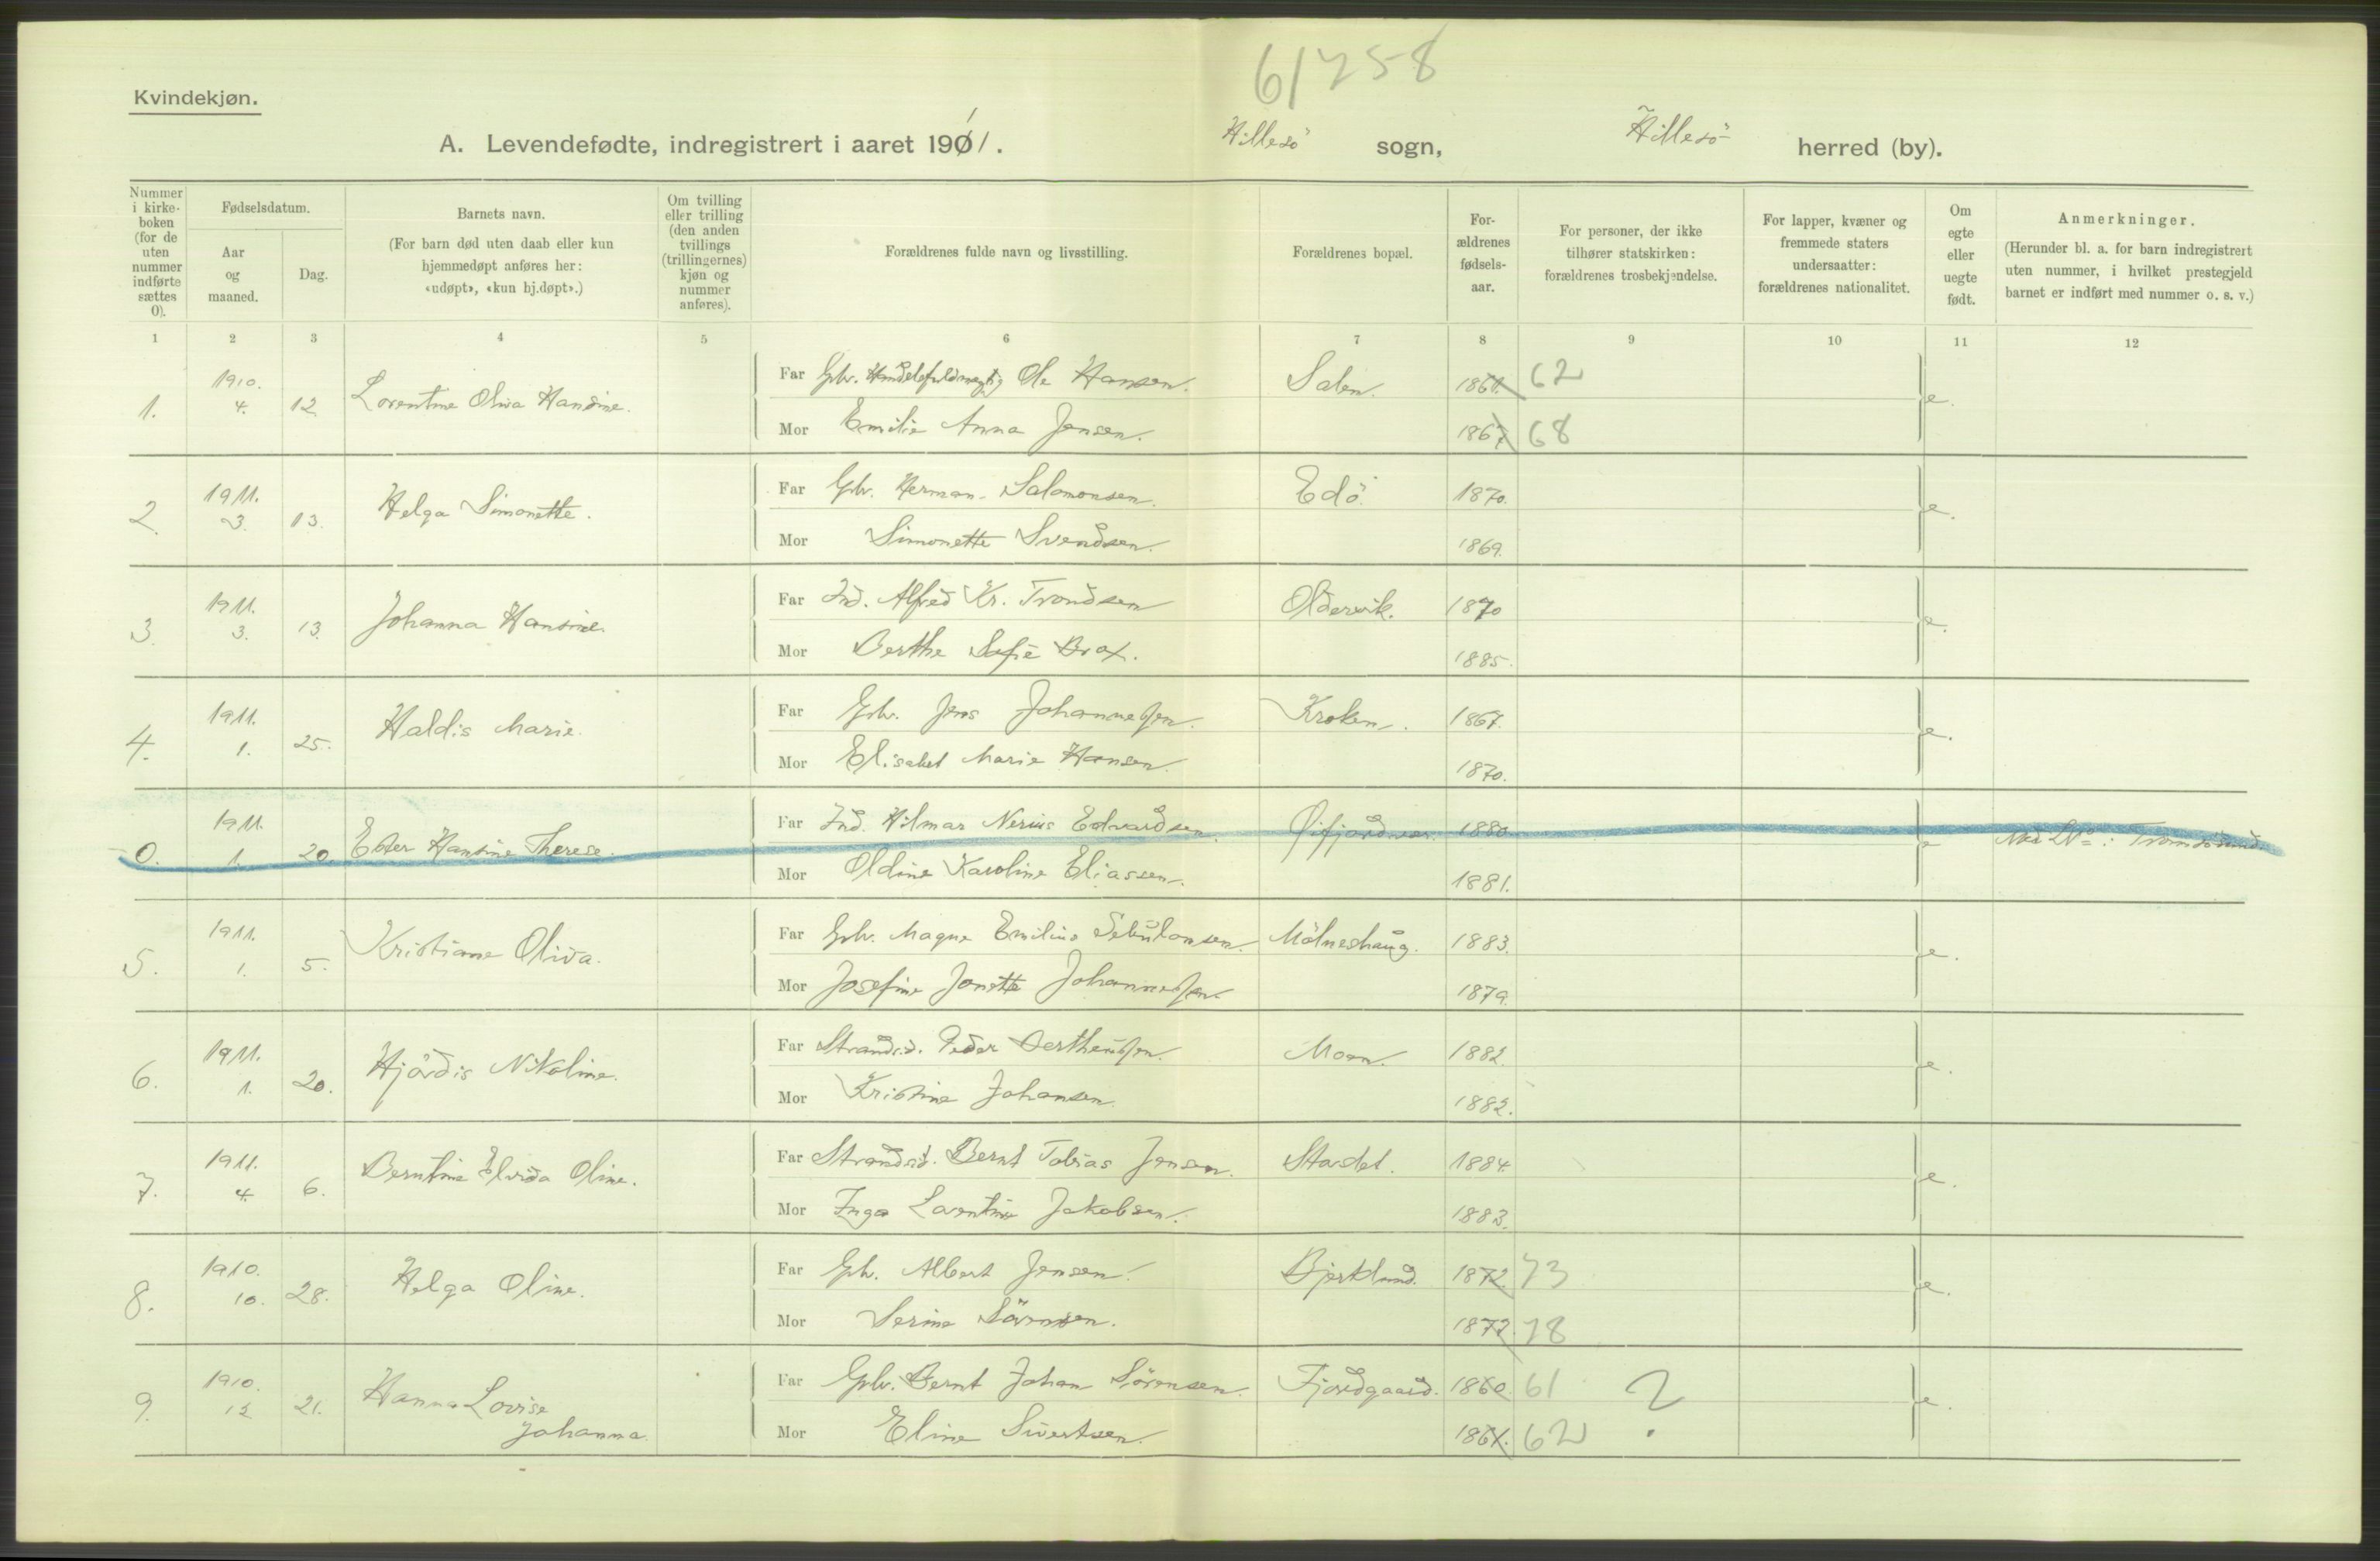 61758
Kvindekjøn.
A. Levendefødte, indregistrert i aaret 1911. Hillesö sogn, Hillesö herred (by).
Nummer i kirke-boken (for de uten nummer indførte sættes 0).
Fødselsdatum.
Aar og maaned.
Dag.
Barnets navn.
(For barn død uten daab eller kun hjemmedøpt anføres her: «udøpt», «kun hj.døpt».)
Om tvilling eller trilling (den anden tvillings (trillingernes) kjøn og nummer anføres).
Forældrenes fulde navn og livsstilling.
Forældrenes bopæl.
For-ældrenes fødsels-aar.
For personer, der ikke tilhører statskirken: forældrenes trosbekjendelse.
For lapper, kvæner og fremmede staters undersaatter: forældrenes nationalitet.
Om egte eller uegte født.
Anmerkninger.
(Herunder bl. a. for barn indregistrert uten nummer, i hvilket prestegjeld barnet er indført med nummer o. s. v.)
1 2 3 4 5 6 7 8 9 10 11 12
1. 1910. 4. 12 Lorentine Oliva Hansine. Far Gbr. Handelsfuldmægtig Ole Hansen. Salen. 1861. 62 e.
Mor Emilie Anna Jensen. 1867 68
2. 1911. 3. 13. Helga Simonette. Far Gbr. Herman Salomonsen. Edö. 1870. e.
Mor Simonette Svendsen. 1869.
3. 1911. 3. 13. Johanna Hansine. Far Ind. Alfred Kr. Trondsen Oldervik. 1870 e.
Mor Berthe Sofie Brox. 1885.
4. 1911. 1. 25. Haldis Marie. Far Gbr. Jens Johannessen. Kroken. 1867. e.
Mor Elisabet Marie Hansen. 1870.
0. 1911. 1. 20. Ester Hansine Therese. Far Ind. Hilmar Nerius Edvardsen. 1880
Med No: Tromsösund.
Mor Oldine Karoline Eliassen. 1881.
5. 1911. 1. 5. Kristiane Oliva. Far Gbr. Magne Emilius Sebulonsen. Mölneshaug. 1883. e.
Mor Josefine Jonette Johannessen. 1879.
6. 1911. 1. 20. Hjördis Nikoline. Far Strands. Peder Bertheussen. Moen. 1882. e.
Mor Kristine Johansen. 1882.
7. 1911. 4. 6. Berntine Elvida Oline. Far Strands. Bernt Tobias Jensen. 1884. e.
Mor Inga Lorentine Jakobsen. 1883.
8. 1910. 10. 28. Helga Oline. Far Gbr. Albert Jensen. Bjerklund. 1872. 73 e.
Mor Serine Sörensen. 1877. 78
9. 1910. 12 21. Hanna Lovise Johanna. Far Gbr. Bernt Johan Sörensen. Fjordgaard. 1860. 61 ? e.
Mor Eline Sivertsen. 1861. 62